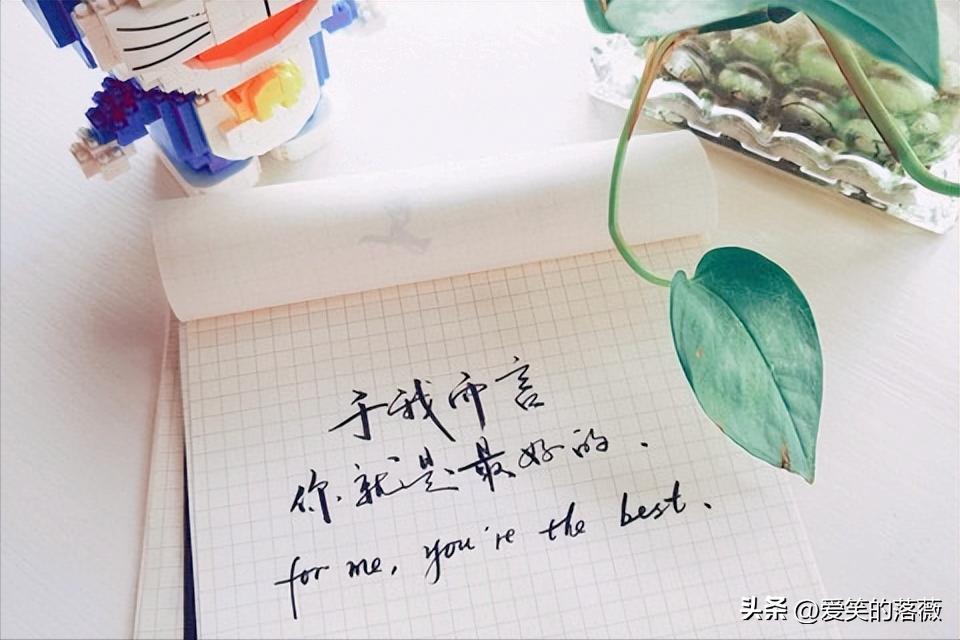 于我而言
你就是最好的.
for me, you're the best.
头条 @爱笑的落薇